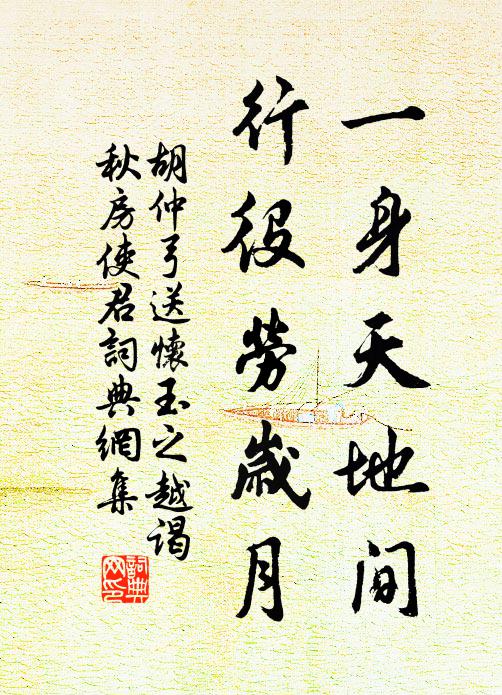 一身天地间
行役勞歲月
胡仲弓送懷玉之越谒
秋房使君詞典網集
詞典
网印